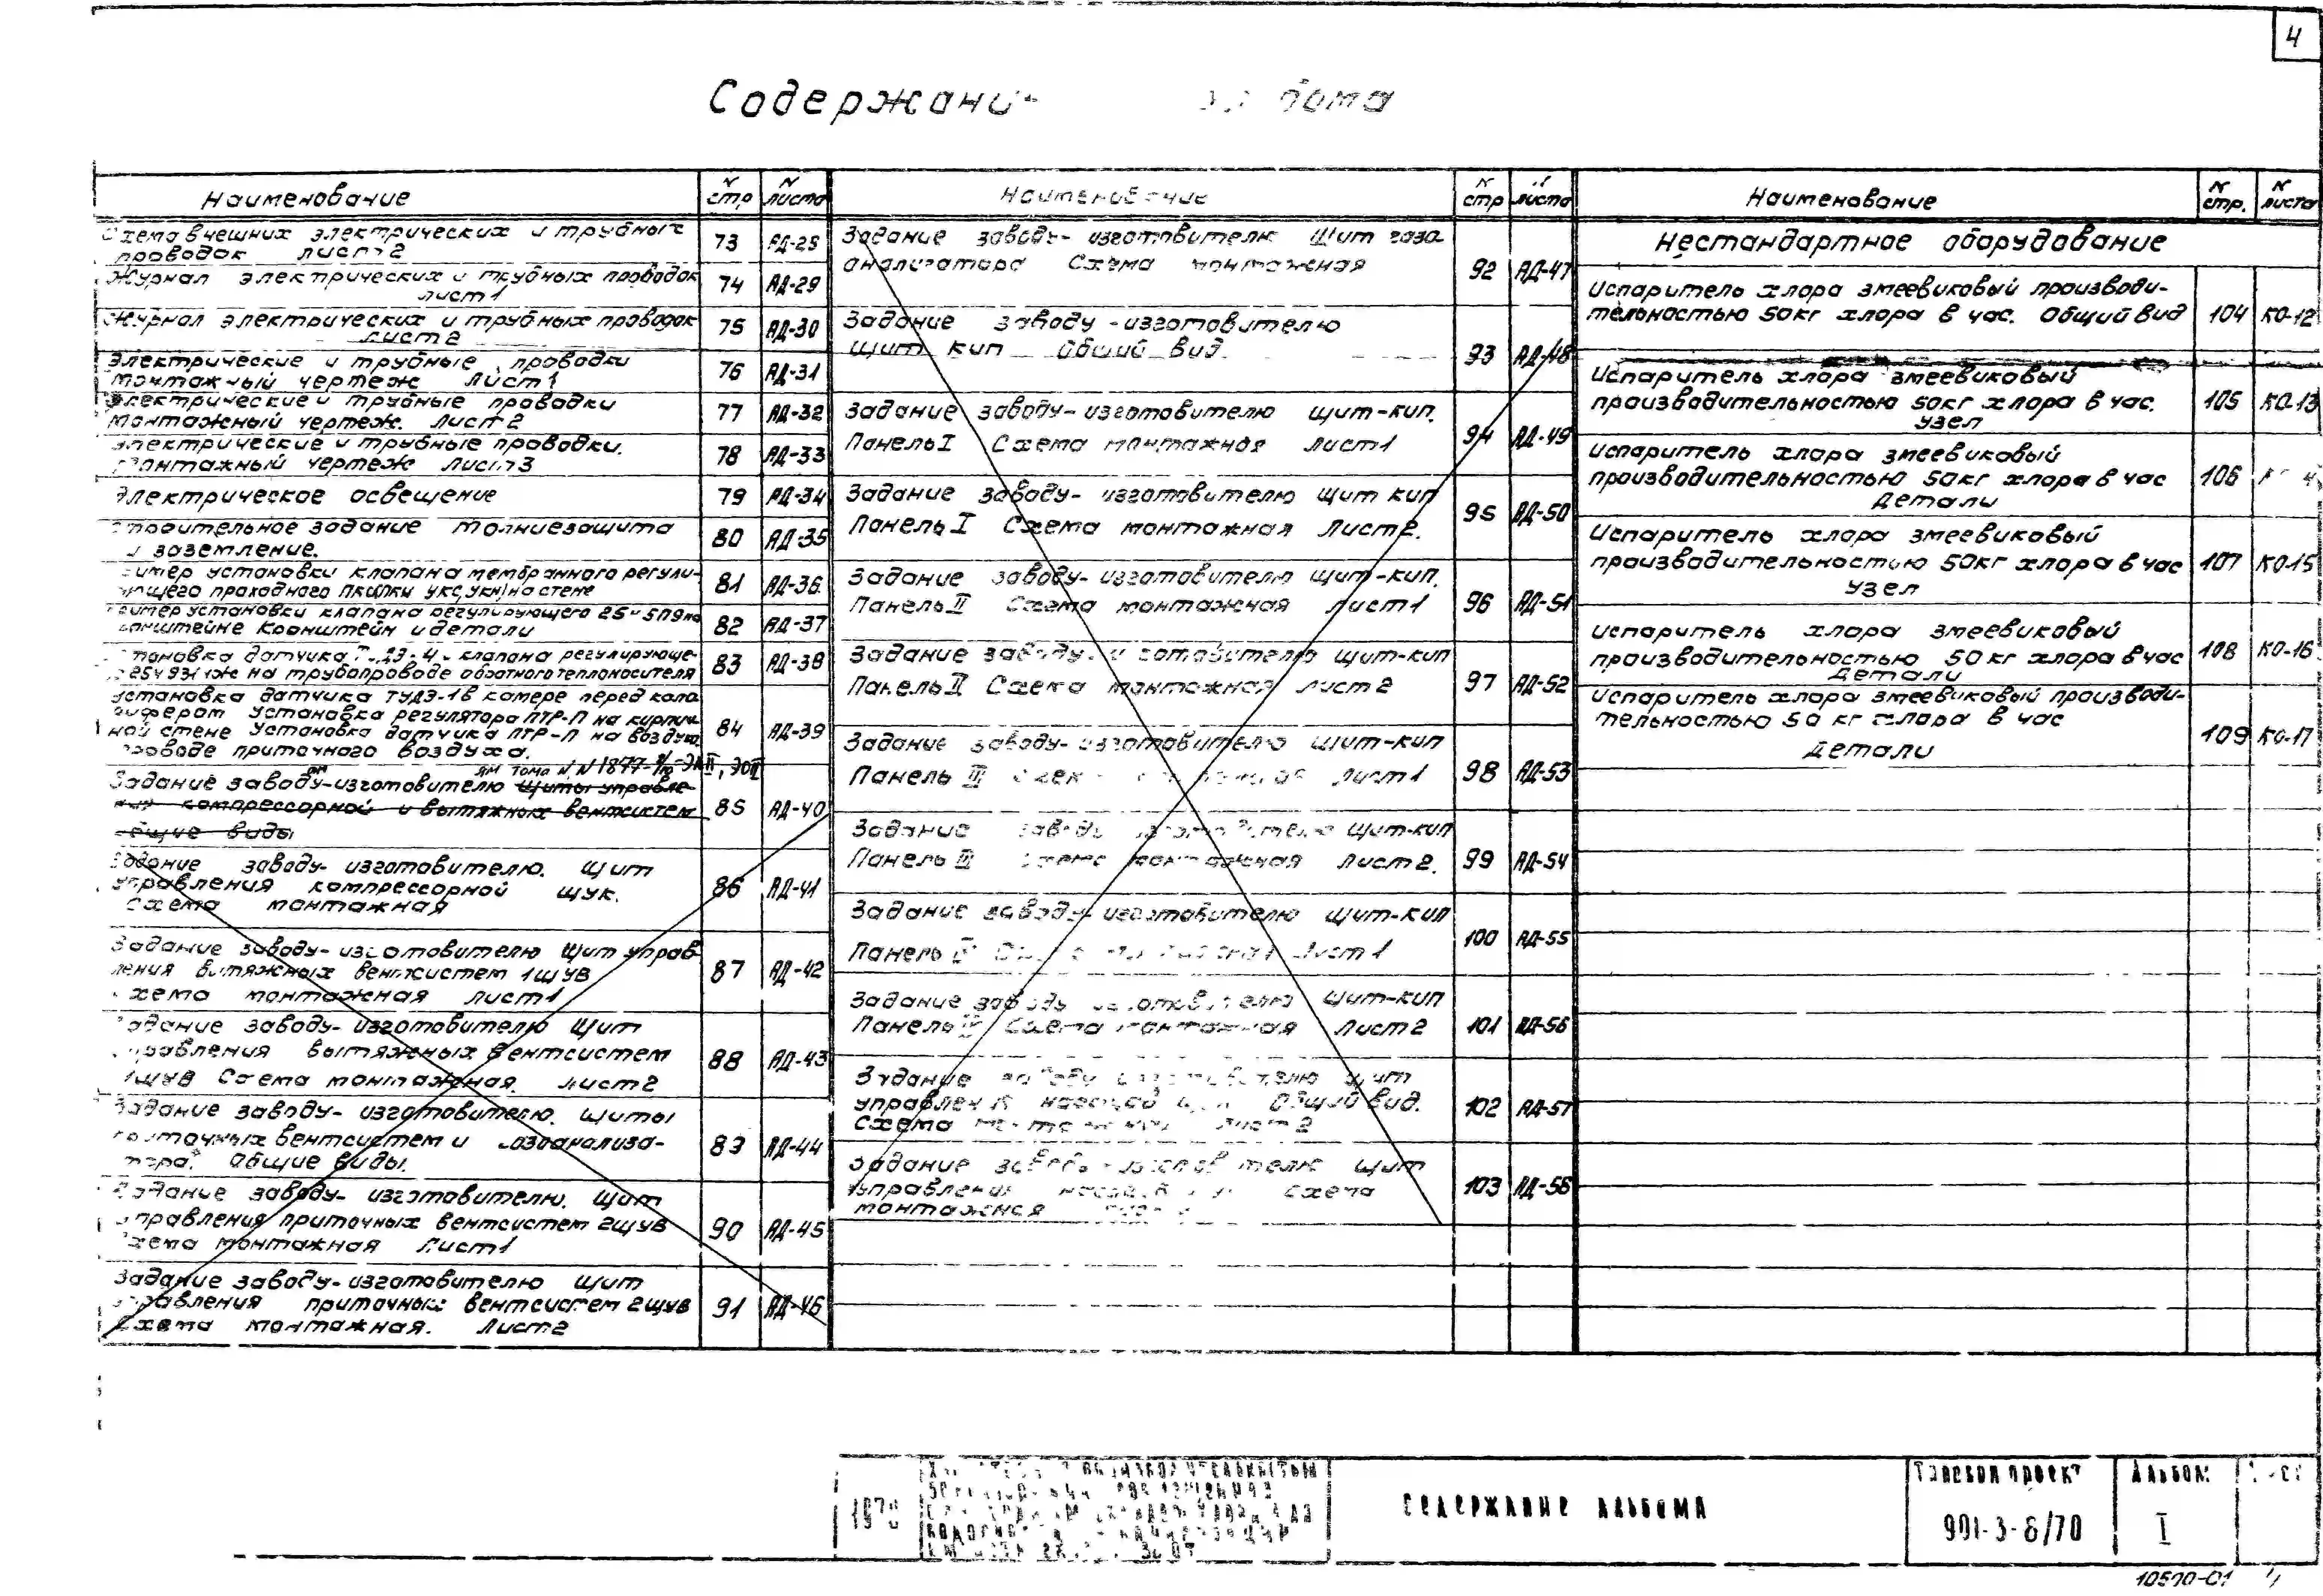 4
Содержани
Наименование
N стр
N листа
внешних электрических и трубных
проводок лист 2
73
АД-28
Журнал электрических и трубных проводок
лист 1
74
АД-29
Журнал электрических и трубных проводок
лист 2
75
АД-30
Электрические и трубные проводки
монтажный чертеж Лист 1
76
АД-31
Электрические и трубные проводки
монтажный чертеж. Лист 2
77
АД-32
Электрические и трубные проводки.
монтажный чертеж Лист 3
78
АД-33
Электрическое освещение
79
АД-34
Строительное задание Молниезащита
и заземление.
80
АД-35
установки клапана мембранного регули-
проходного на стене
81
АД-36
установки клапана регулирующего
Кронштейн и детали
82
АД-37
датчика клапана регулирующе-
на трубопроводе обратного теплоносителя
83
АД-38
Установка датчика ТУДЭ-1 в камере перед кало
рифером Установка регулятора ПТР-П на кирпич
ной стене Установка датчика ПТР-П на воздухо
проводе приточного воздуха.
84
АД-39
Задание заводу-изготовителю Щиты управле-
ния компрессорной и вытяжных вентсистем
общие виды
85
АД-40
Задание заводу- изготовителю. Щит
управления компрессорной ЩУК.
Схема монтажная
86
АД-41
Задание заводу- изготовителю Щит управ
ления вытяжных вентсистем 1ЩУВ
Схема монтажная лист 1
87
АД-42
Задание заводу- изготовителю Щит
управления вытяжных вентсистем
1ЩУВ Схема монтажная. лист 2
88
АД-43
Задание заводу- изготовителю. Щиты
приточных вентсистем и газоанализа-
тора. Общие виды.
89
АД-44
Задание заводу- изготовителю. Щит
управления приточных вентсистем 2ЩУВ
Схема монтажная Лист 1
90
АД-45
Задание заводу- изготовителю Щит
управления приточных вентсистем 2ЩУВ
Схема монтажная. Лист 2
91
АД-46
Наименование
N стр
N листа
Задание заводу- изготовителю Щит газо
анализатора Схема монтажная
92
АД-47
Задание заводу - изготовителю
Щит кип Общий вид.
93
АД-48
Задание заводу- изготовителю щит-кип.
Панель I Схема монтажная лист 1
94
АД-49
Задание заводу- изготовителю щит кип
Панель I Схема монтажная Лист 2.
95
АД-50
Задание заводу- изготовителю щит-кип.
Панель II Схема монтажная лист 1
96
АД-51
Задание заводу- изготовителю щит-кип
Панель II Схема монтажная лист 2
97
АД-52
Задание заводу- изготовителю щит-кип
Панель III лист 1
98
АД-53
Задание заводу изготовителю щит-кип
Панель III Схема монтажная Лист 2.
99
АД-54
Задание заводу- изготовителю щит-кип
Панель Лист 1
100
АД-55
Задание заводу изготовителю щит-кип
Панель Схема монтажная Лист 2
101
АД-56
Задание заводу изготовителю щит
управлен Общий вид.
Схема лист 2
102
АД-57
Задание щит
управления схема
монтажная
103
АД-58
Наименование
N стр.
N листа
Нестандартное оборудование
Испаритель хлора змеевиковый производи-
тельностью 50кг хлора в час. Общий вид
104
КО-12
Испаритель хлора змеевиковый
производительностью 50кг хлора в час.
Узел
105
КО-13
Испаритель хлора змеевиковый
производительностью 50кг хлора в час
Детали
106
Испаритель хлора змеевиковый
производительностью 50кг хлора в час
Узел
107
КО-15
Испаритель хлора змеевиковый
производительностью 50 кг хлора в час
Детали
108
КО-16
Испаритель хлора змеевиковый производи-
тельностью 50 кг хлора в час
Детали
109
КО-17
СОДЕРЖАНИЕ АЛЬБОМА
Типовой проект
901-3-8/70
Альбом
I
10570-01 4